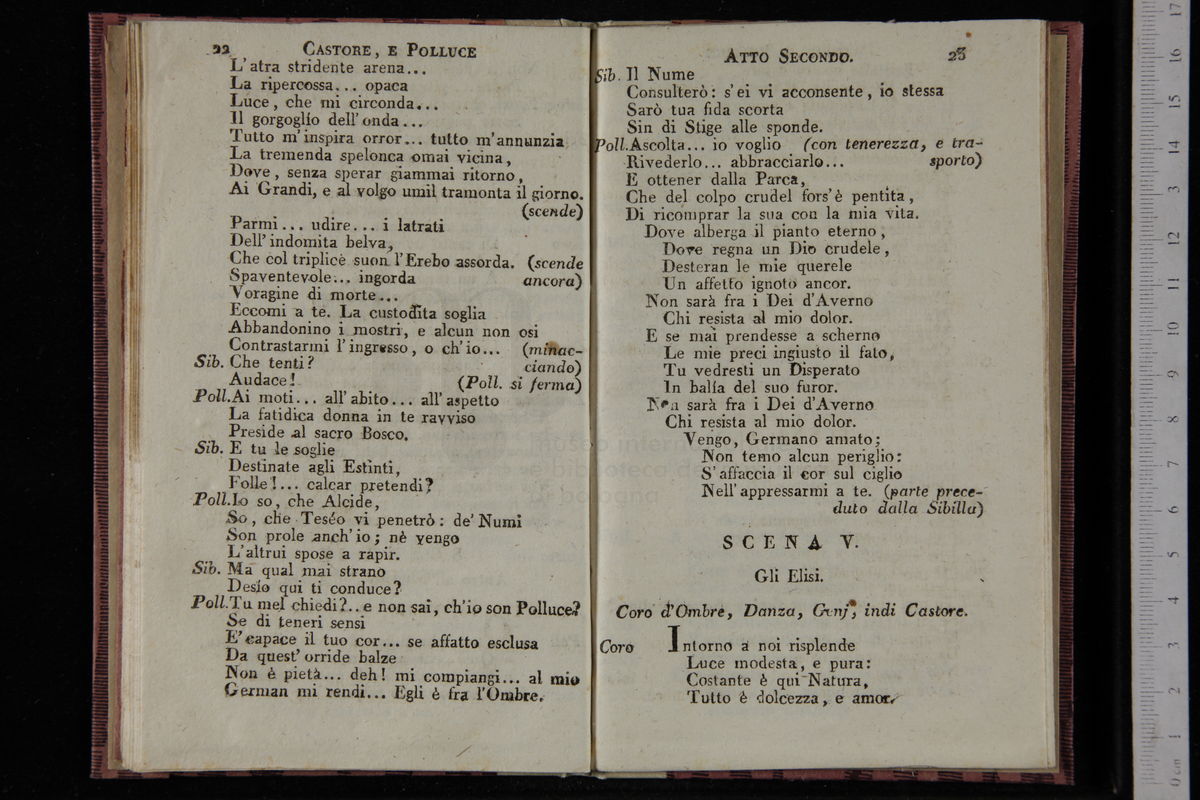 22 CASTORE, E POLLUCE
L'atra stridente arena...
La ripercossa... opaca
Luce, che mi circonda...
Il gorgoglio dell'onda...
Tutto m'inspira orror... tutto m'annunzia
La tremenda spelonca omai vicina,
Dove, senza sperar giammai ritorno,
Ai Grandi, e al volgo umil tramonta il giorno.
(scende)
Parmi... udire... i latrati
Dell'indomita belva,
Che col triplice suon l'Erebo assorda. (scende
Spaventevole... ingorda ancora)
Voragine di morte...
Eccomi a te. La custodita soglia
Abbandonino i mostri, e alcun non osi
Contrastarmi l'ingresso, o ch'io... (minac-
Sib. Che tenti? ciando)
Audace! (Poll. si ferma)
Poll. Ai moti... all'abito... all'aspetto
La fatidica donna in te ravviso
Preside al sacro Bosco.
Sib. E tu le soglie
Destinate agli Estinti,
Folle!... calcar pretendi?
Poll. Io so, che Alcide,
So, che Teséo vi penetrò: de' Numi
Son prole anch'io; nè vengo
L'altrui spose a rapir.
Sib. Ma qual mai strano
Desío qui ti conduce?
Poll. Tu mel chiedi?.. e non sai, ch'io son Polluce?
Se di teneri sensi
E' capace il tuo cor... se affatto esclusa
Da quest'orride balze
Non è pietà... deh! mi compiangi... al mio
German mi rendi... Egli è fra l'Ombre.
ATTO SECONDO. 23
Sib. Il Nume
Consulterò: s'ei vi acconsente, io stessa
Sarò tua fida scorta
Sin di Stige alle sponde.
Poll. Ascolta... io voglio (con tenerezza, e tra-
Rivederlo... abbracciarlo... sporto)
E ottener dalla Parca,
Che del colpo crudel fors'è pentita,
Di ricomprar la sua con la mia vita.
Dove alberga il pianto eterno,
Dove regna un Dio crudele,
Desteran le mie querele
Un affetto ignoto ancor.
Non sarà fra i Dei d'Averno
Chi resista al mio dolor.
E se mai prendesse a scherno
Le mie preci ingiusto il fato,
Tu vedresti un Disperato
In balía del suo furor.
Non sarà fra i Dei d'Averno
Chi resista al mio dolor.
Vengo, Germano amato;
Non temo alcun periglio:
S'affaccia il cor sul ciglio
Nell'appressarmi a te. (parte prece-
duto dalla Sibilla)
SCENA V.
Gli Elisi.
Coro d'Ombre, Danza, Genj, indi Castore.
Coro Intorno a noi risplende
Luce modesta, e pura:
Costante è qui Natura,
Tutto è dolcezza, e amor.